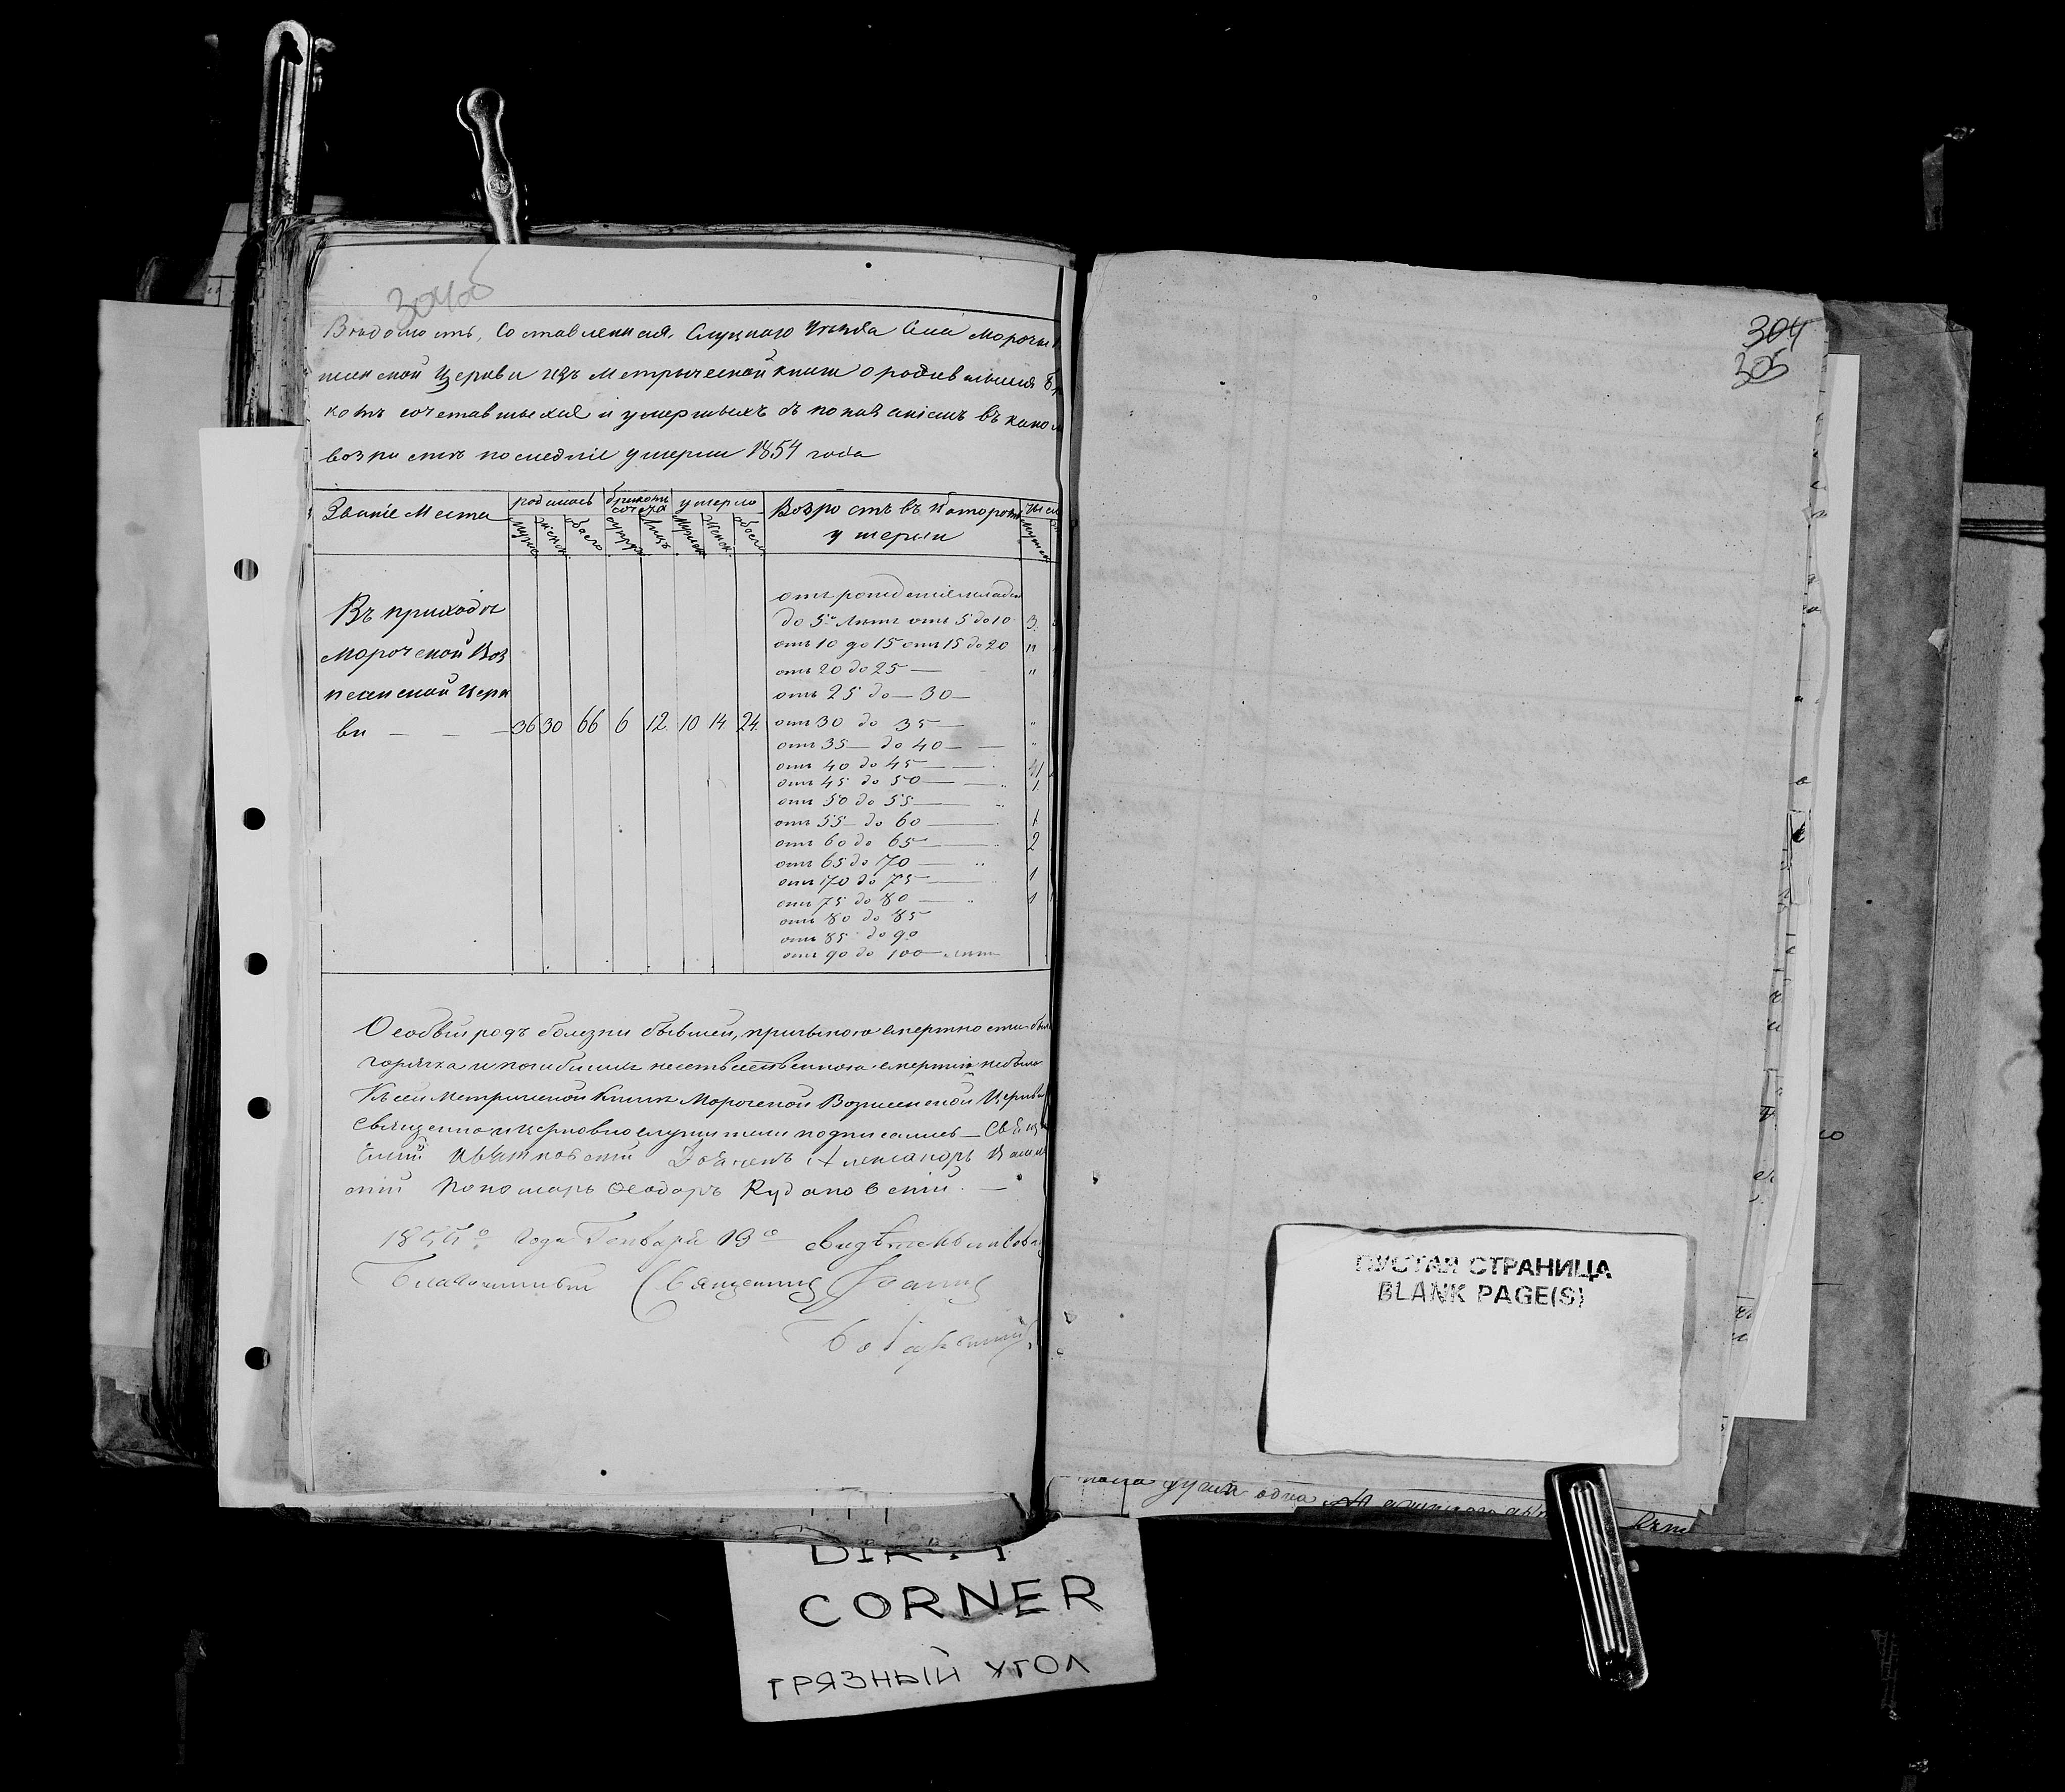 304об
Вѣдомость, Составленная, Слуцкаго Уѣзда Села Морочи
песенской Церкви изъ Метрической книги о родившихся
комъ сочетавшыхся и умершыхъ съ показаніемъ въ како
возрастѣ последніе умерли 1854 года
Званіе Места
родилось
бракомъ сочета
умерло
Возростъ въ Которомъ умерли
Числ
мужс
женск
обоего
супруж
Лицъ
Мужск
Женск
обоего
Мужск
Въ приходѣ
Морочской Воз
несенской Церк
ви — — — 36 30 66 6 12. 10 14. 24.
отъ рожденія младен
до 5о Лѣтъ отъ 5 до 10 3.
отъ 10 до 15 отъ 15 до 20 "
отъ 20 до 25 — "
отъ 25 до — 30 —
отъ 30 до 35 — "
отъ 35 — до 40 — — "
отъ 40 до 45 —
отъ 45 до 50 — — 1.
отъ 50 до 55 —
отъ 55 — до 60 — 1
отъ 60 до 65 — 2
отъ 65 до 70 — "
отъ 70 до 75 — 1
отъ 75 до 80 — 1
отъ 80 до 85
отъ 85 до 90
отъ 90 до 100 — лѣтъ
Особый родъ болезни бывшей, причыною смертности был
горячка и погибшихъ неестѣественною смертію небыло
Къ сей Метрической Книгѣ Морочской Вознесенской Церкви
Священно и церковнослужители подписались — Свящ
Квятковскій Дьячекъ Александръ
скій Пономарь Ѳеодоръ Кудановскій. —
1855о года Генваря 19о свидѣтельствова
Благочинный Священникъ Іоаннъ
304
305
ПУСТАЯ СТРАНИЦА
BLANK PAGE(S)
душа одна
DIRTY
CORNER
ГРЯЗНЫЙ УГОЛ